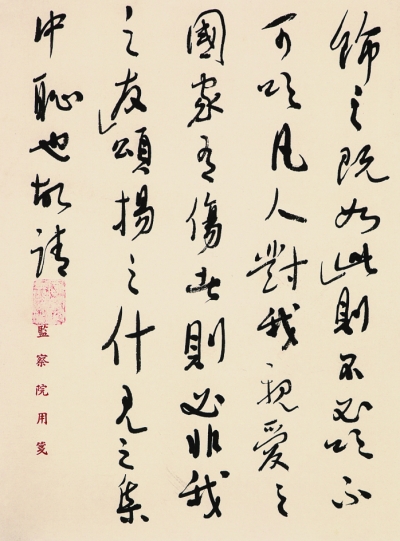 飾之既如此則不必吹不
可吹凡人對我親愛之
國家有傷者則必非我
之友頌揚之什見之集
中恥也敬請
監察院用箋